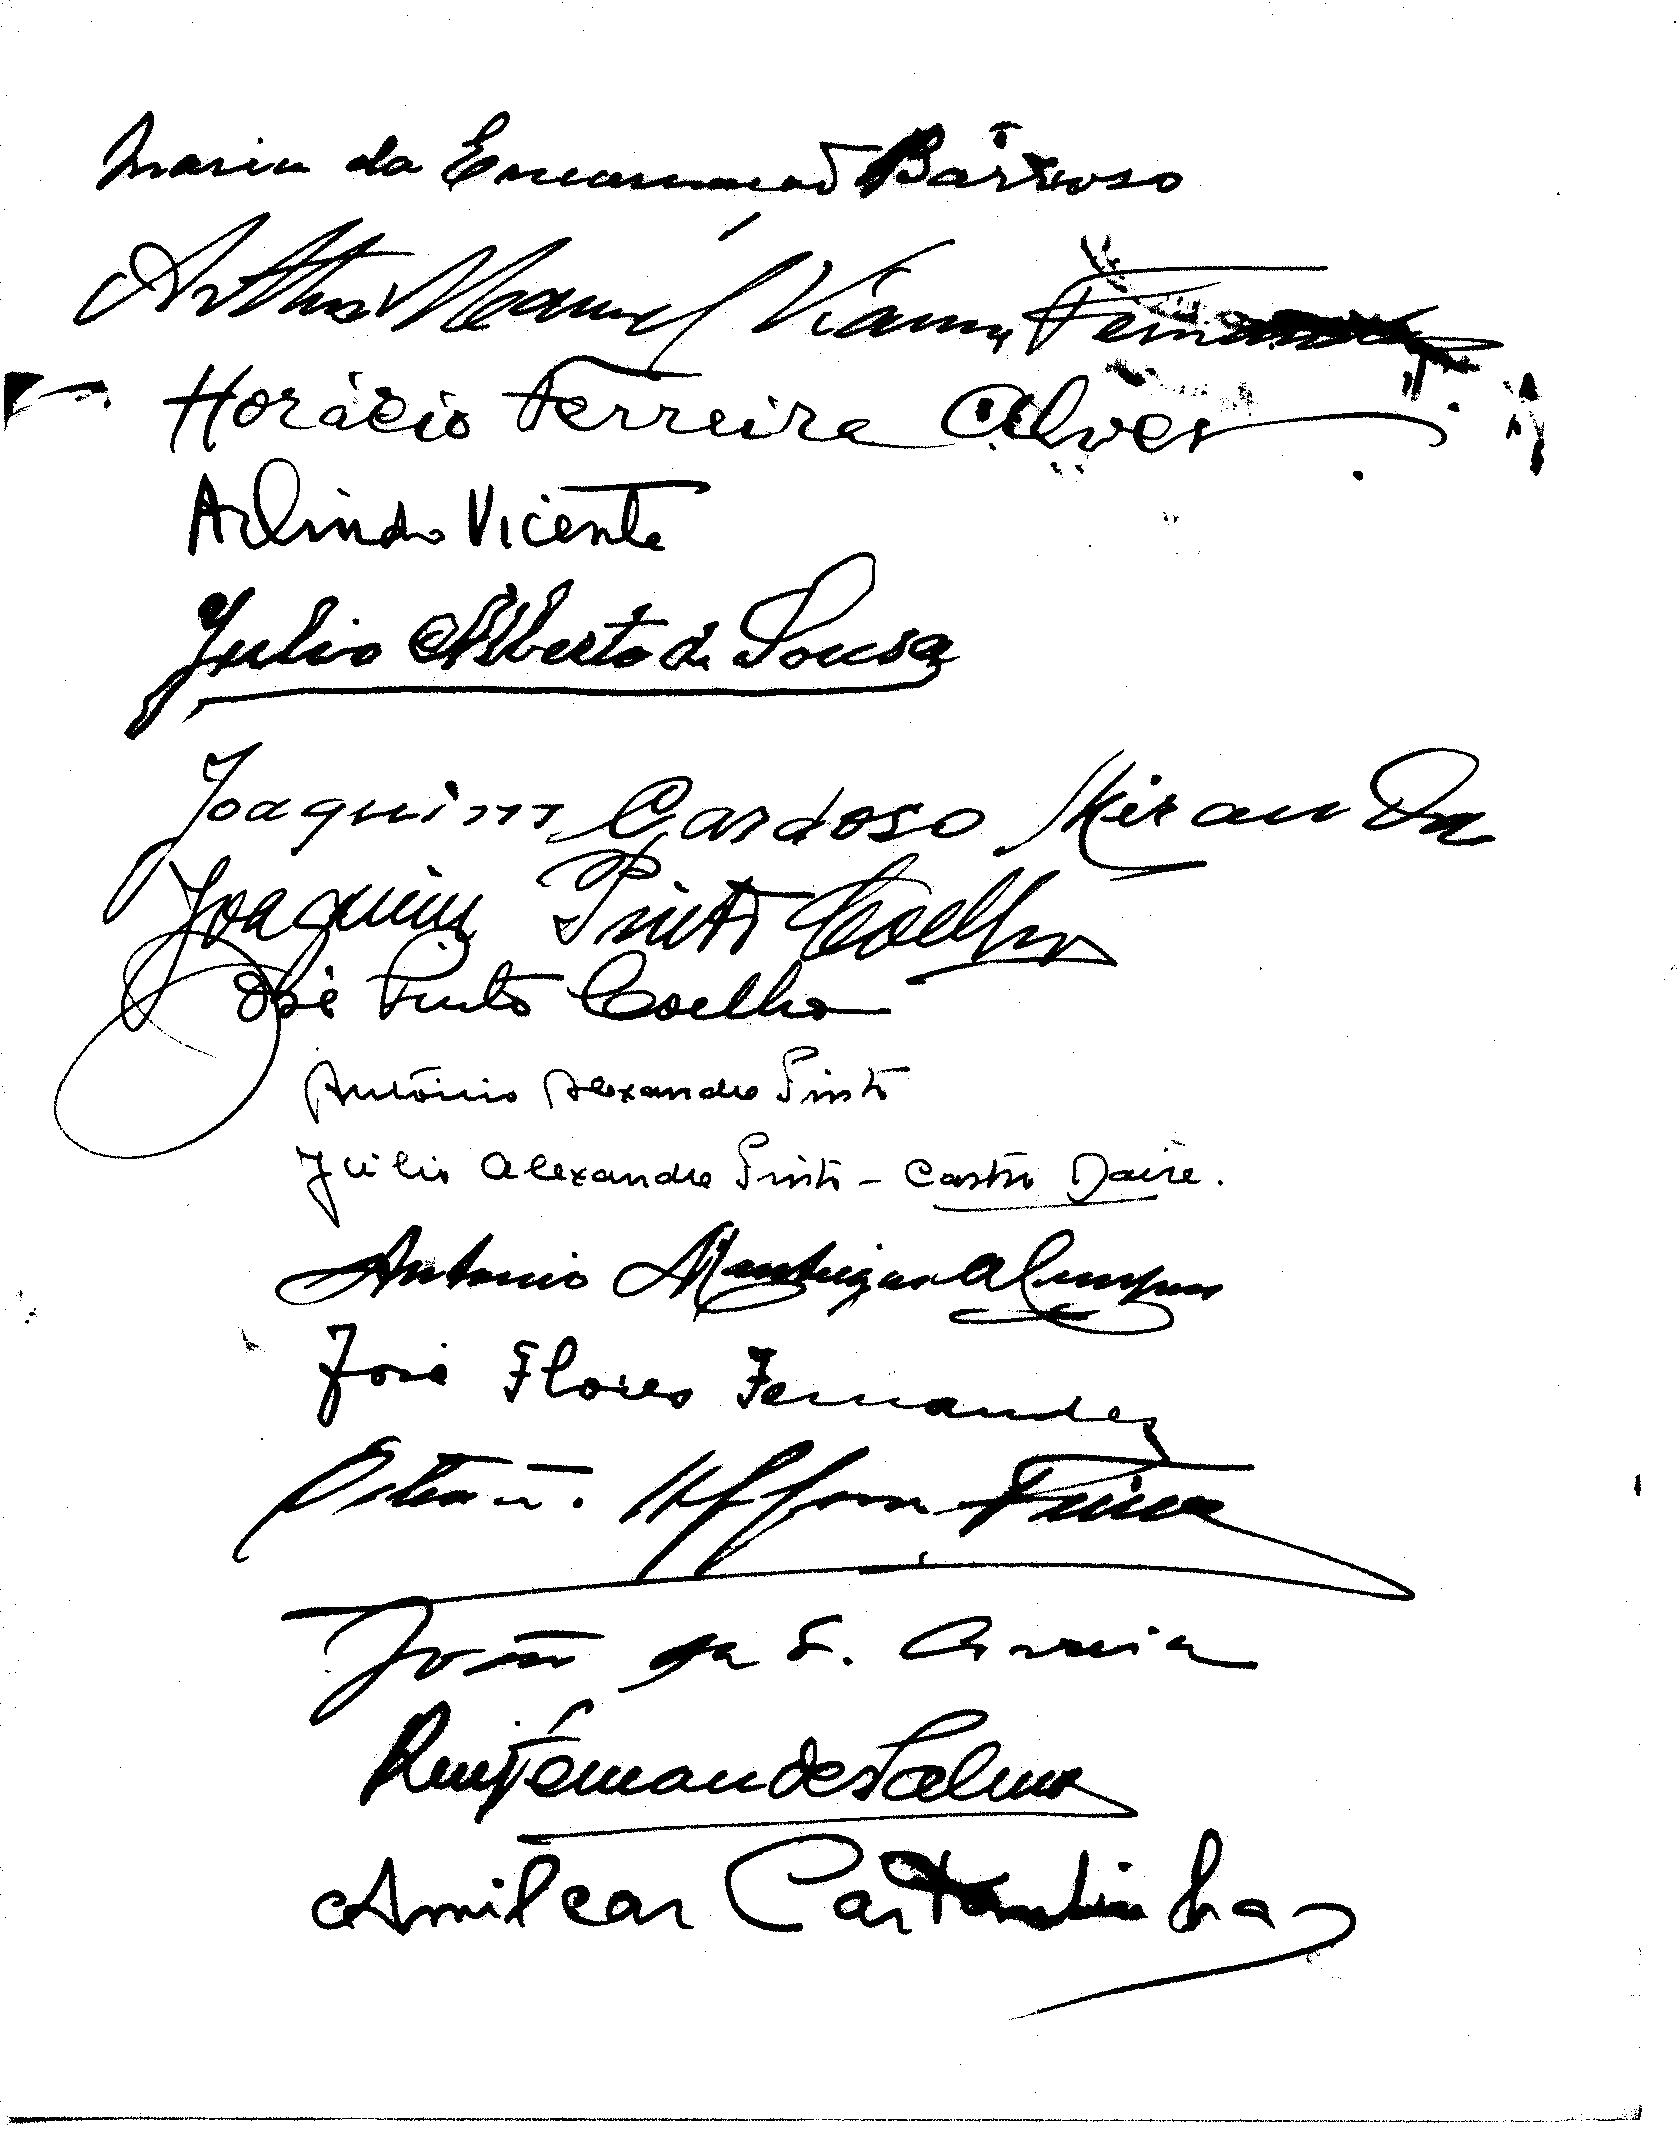 Maria da Encarnação Barroso
Arthur Manuel Vianna Fernandes
Horácio Ferreira Alves
Arlindo Vicente
Julio Alberto de Sousa
Joaquim Cardoso Miranda
Joaquim Pinto Coelho
José Pinto Coelho
António Alexandre Pinto
Júlio Alexandre Pinto - Castro Daire.
Antonio
José Flores Fernandes
João da S. Correia
Ruy Fernandes Palma
Amilcar Castanhinha